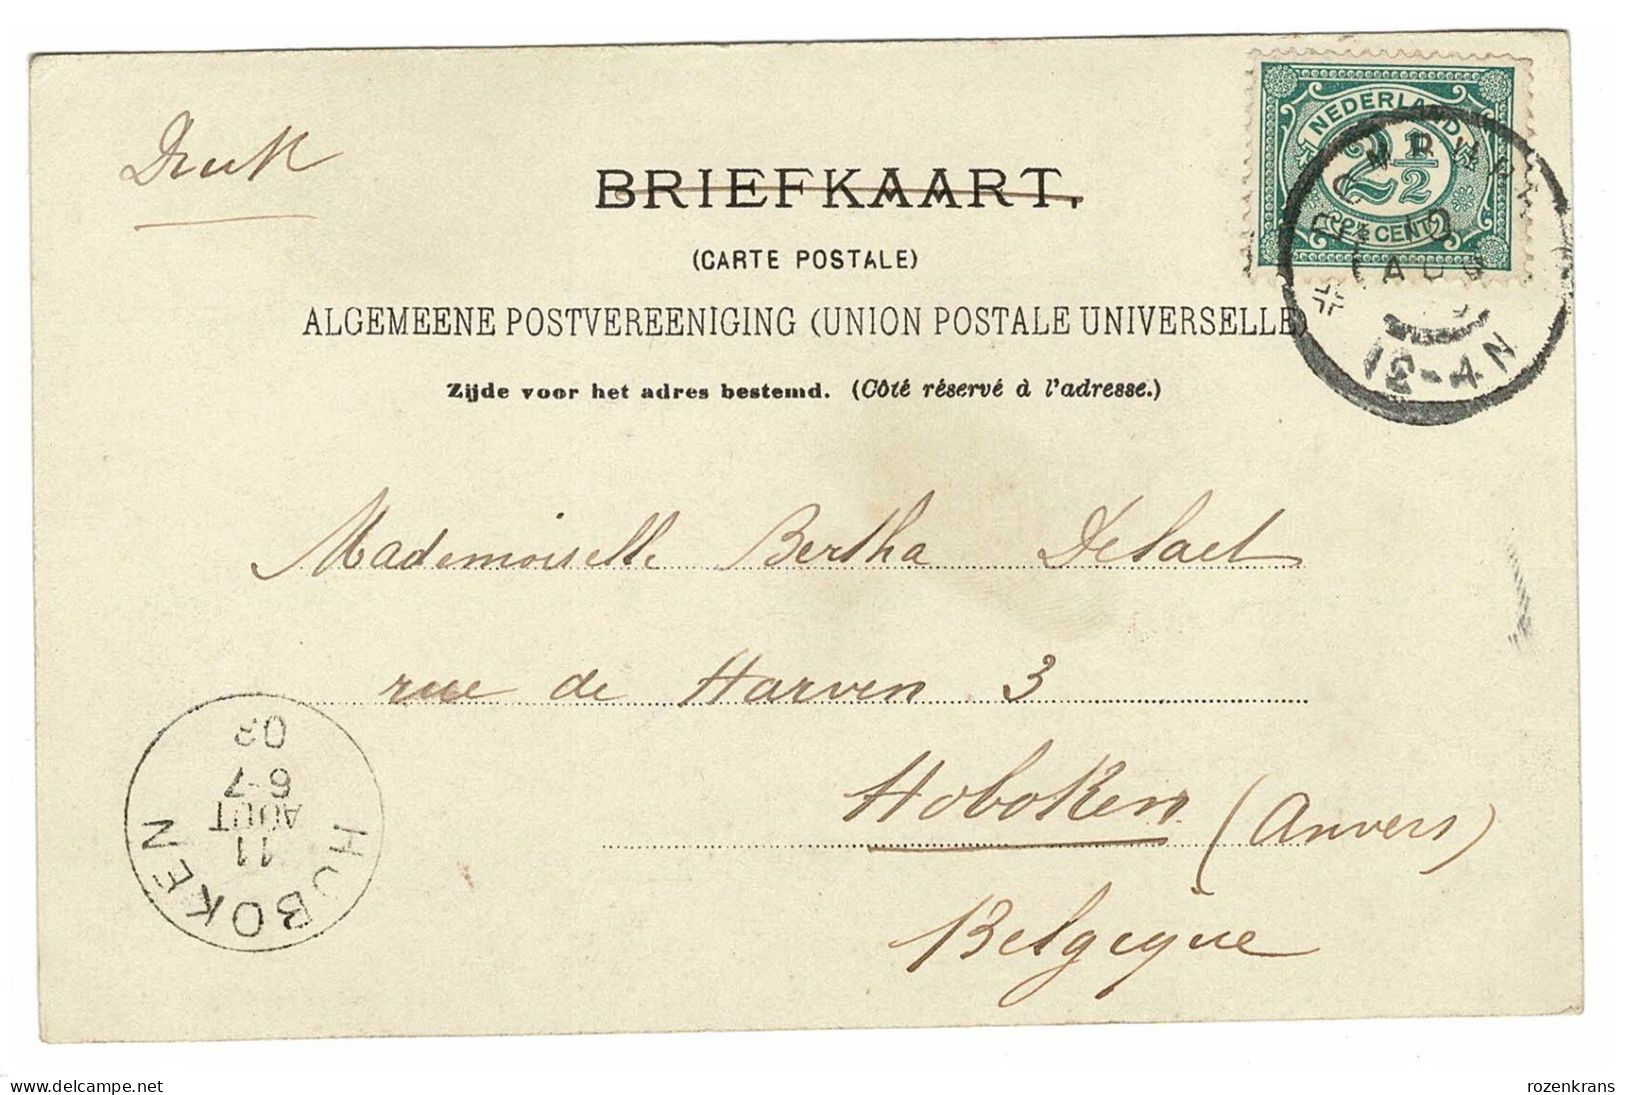 Druk
BRIEFKAART.
(CARTE POSTALE)
ALGEMEENE POSTVEREENIGING (UNION POSTALE UNIVERSELLE)
Zijde voor het adres bestemd. (Côté réservé à l'adresse.)
NEDERLAND
2½
2½ CENT
AUG
12-4N
Mademoiselle Bertha Delaet
rue de Harven 3
Hoboken (Anvers)
Belgique
HOBOKEN
11
AOUT
6-7
03
delcampe.net
rozenkrans